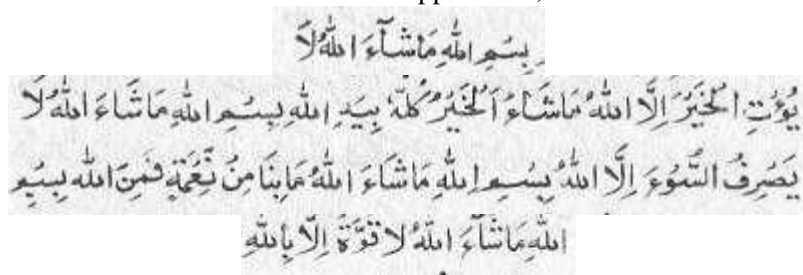 بِسْمِ اللهِ مَاشَآءَ اللهُ لَا
يُؤْتِ الْخَيْرَ إِلَّا اللهُ مَاشَاءَ اَلْخَيْرُ كُلُّهُ بِيَدِ اللهِ بِسْمِ اللهِ مَاشَاءَ اللهُ لَا
يَصْرِفُ السُّوْءَ إِلَّا اللهُ بِسْمِ اللهِ مَاشَاءَ اللهُ مَابِنَا مِنْ نِّعْمَةٍ فَمِنَ اللهِ بِسْمِ
اللهِ مَاشَآءَ اللهُ لَا قُوَّةَ اِلَّا بِاللهِ